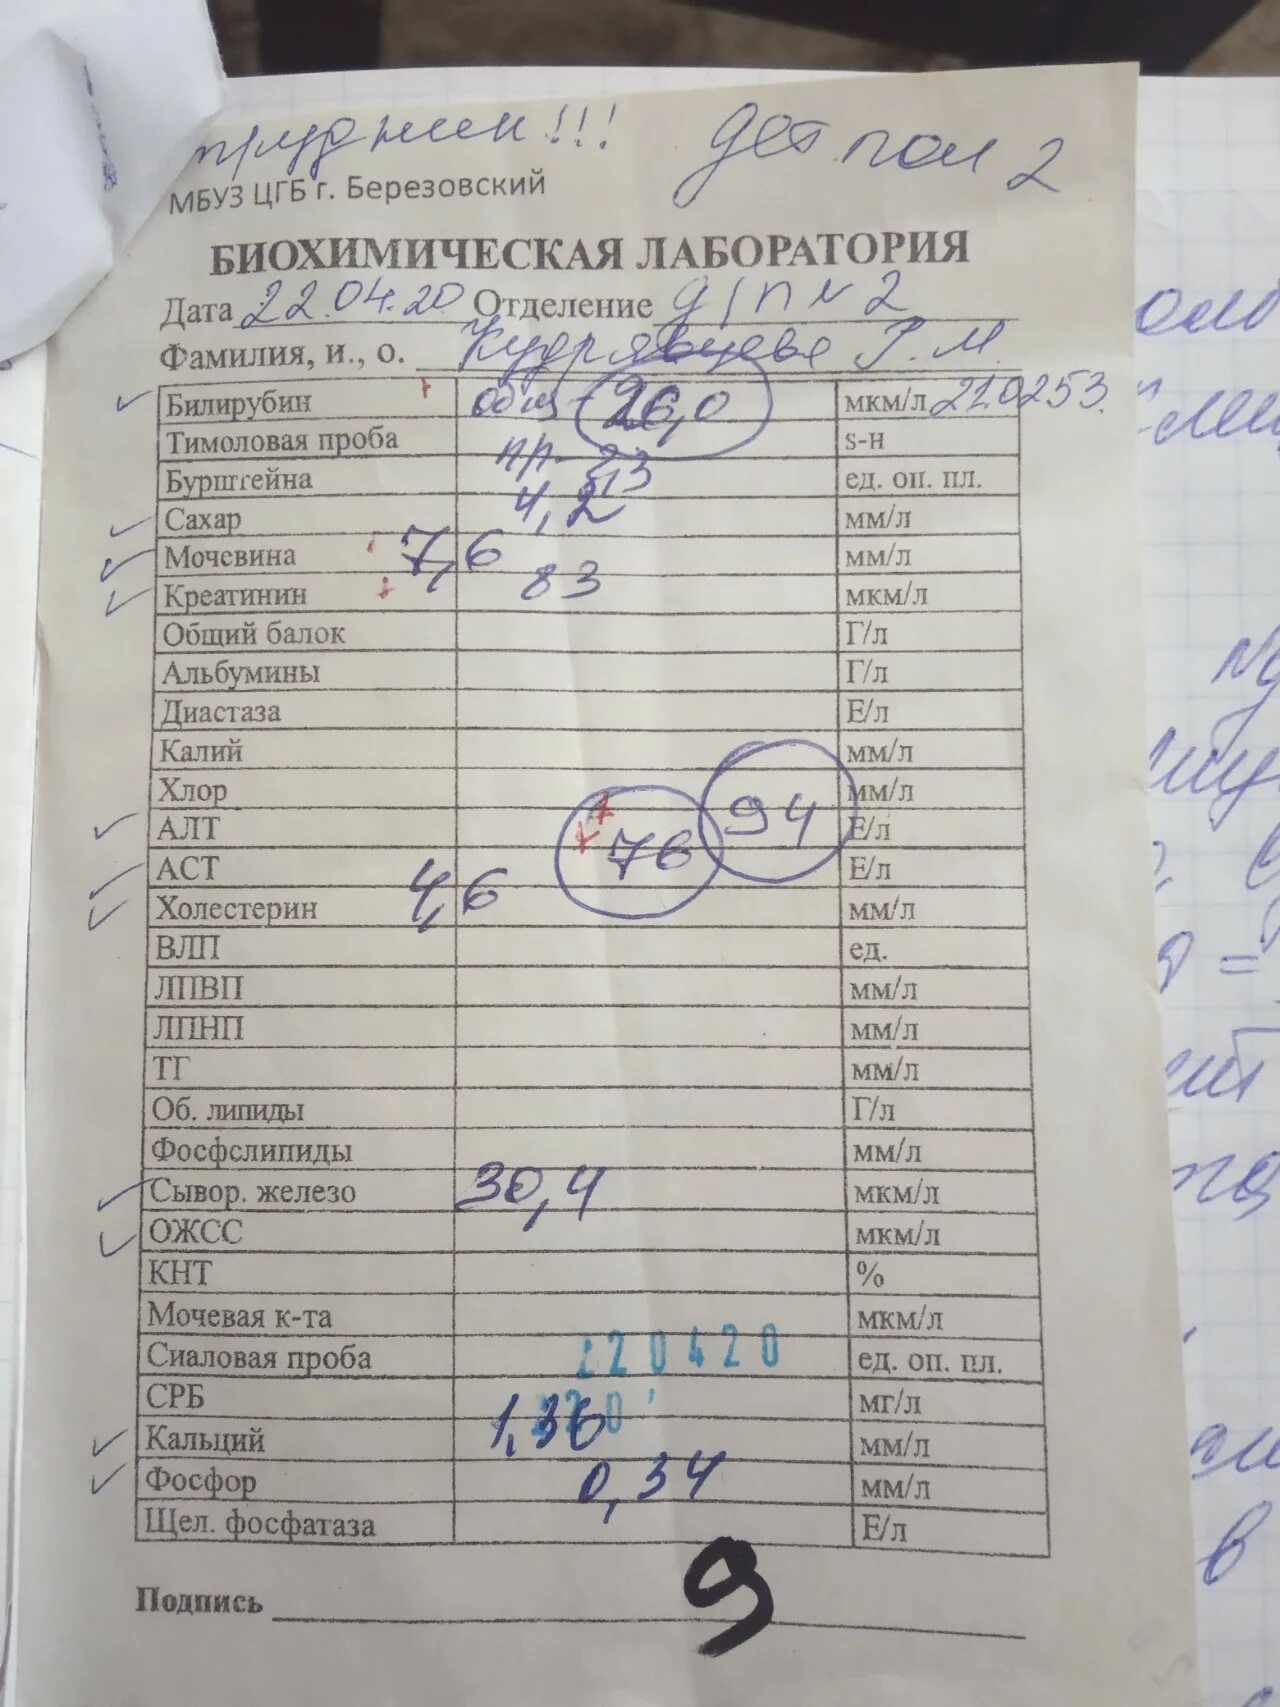 трудник!!! дет. пол 2
МБУЗ ЦГБ г. Березовский
БИОХИМИЧЕСКАЯ ЛАБОРАТОРИЯ
Дата 22.04.20 Отделение д/п № 2
Фамилия, и., о. Кудрявцева Г. М.
Билирубин общ - 26,0 мкм/л 210253.
Тимоловая проба s-н
Бурштейна пр- ед. оп. пл.
Сахар 4,2 мм/л
Мочевина 7,6 мм/л
Креатинин 83 мкм/л
Общий балок Г/л
Альбумины Г/л
Диастаза Е/л
Калий мм/л
Хлор мм/л
АЛТ 94 Е/л
АСТ 76 Е/л
Холестерин 4,6 мм/л
ВЛП ед.
ЛПВП мм/л
ЛПНП мм/л
ТГ мм/л
Об. липиды Г/л
Фосфслипиды мм/л
Сывор. железо 30,4 мкм/л
ОЖСС мкм/л
КНТ %
Мочевая к-та мкм/л
Сиаловая проба 220420 ед. оп. пл.
СРБ мг/л
Кальций 1,36 мм/л
Фосфор 0,34 мм/л
Щел. фосфатаза Е/л
9
Подпись